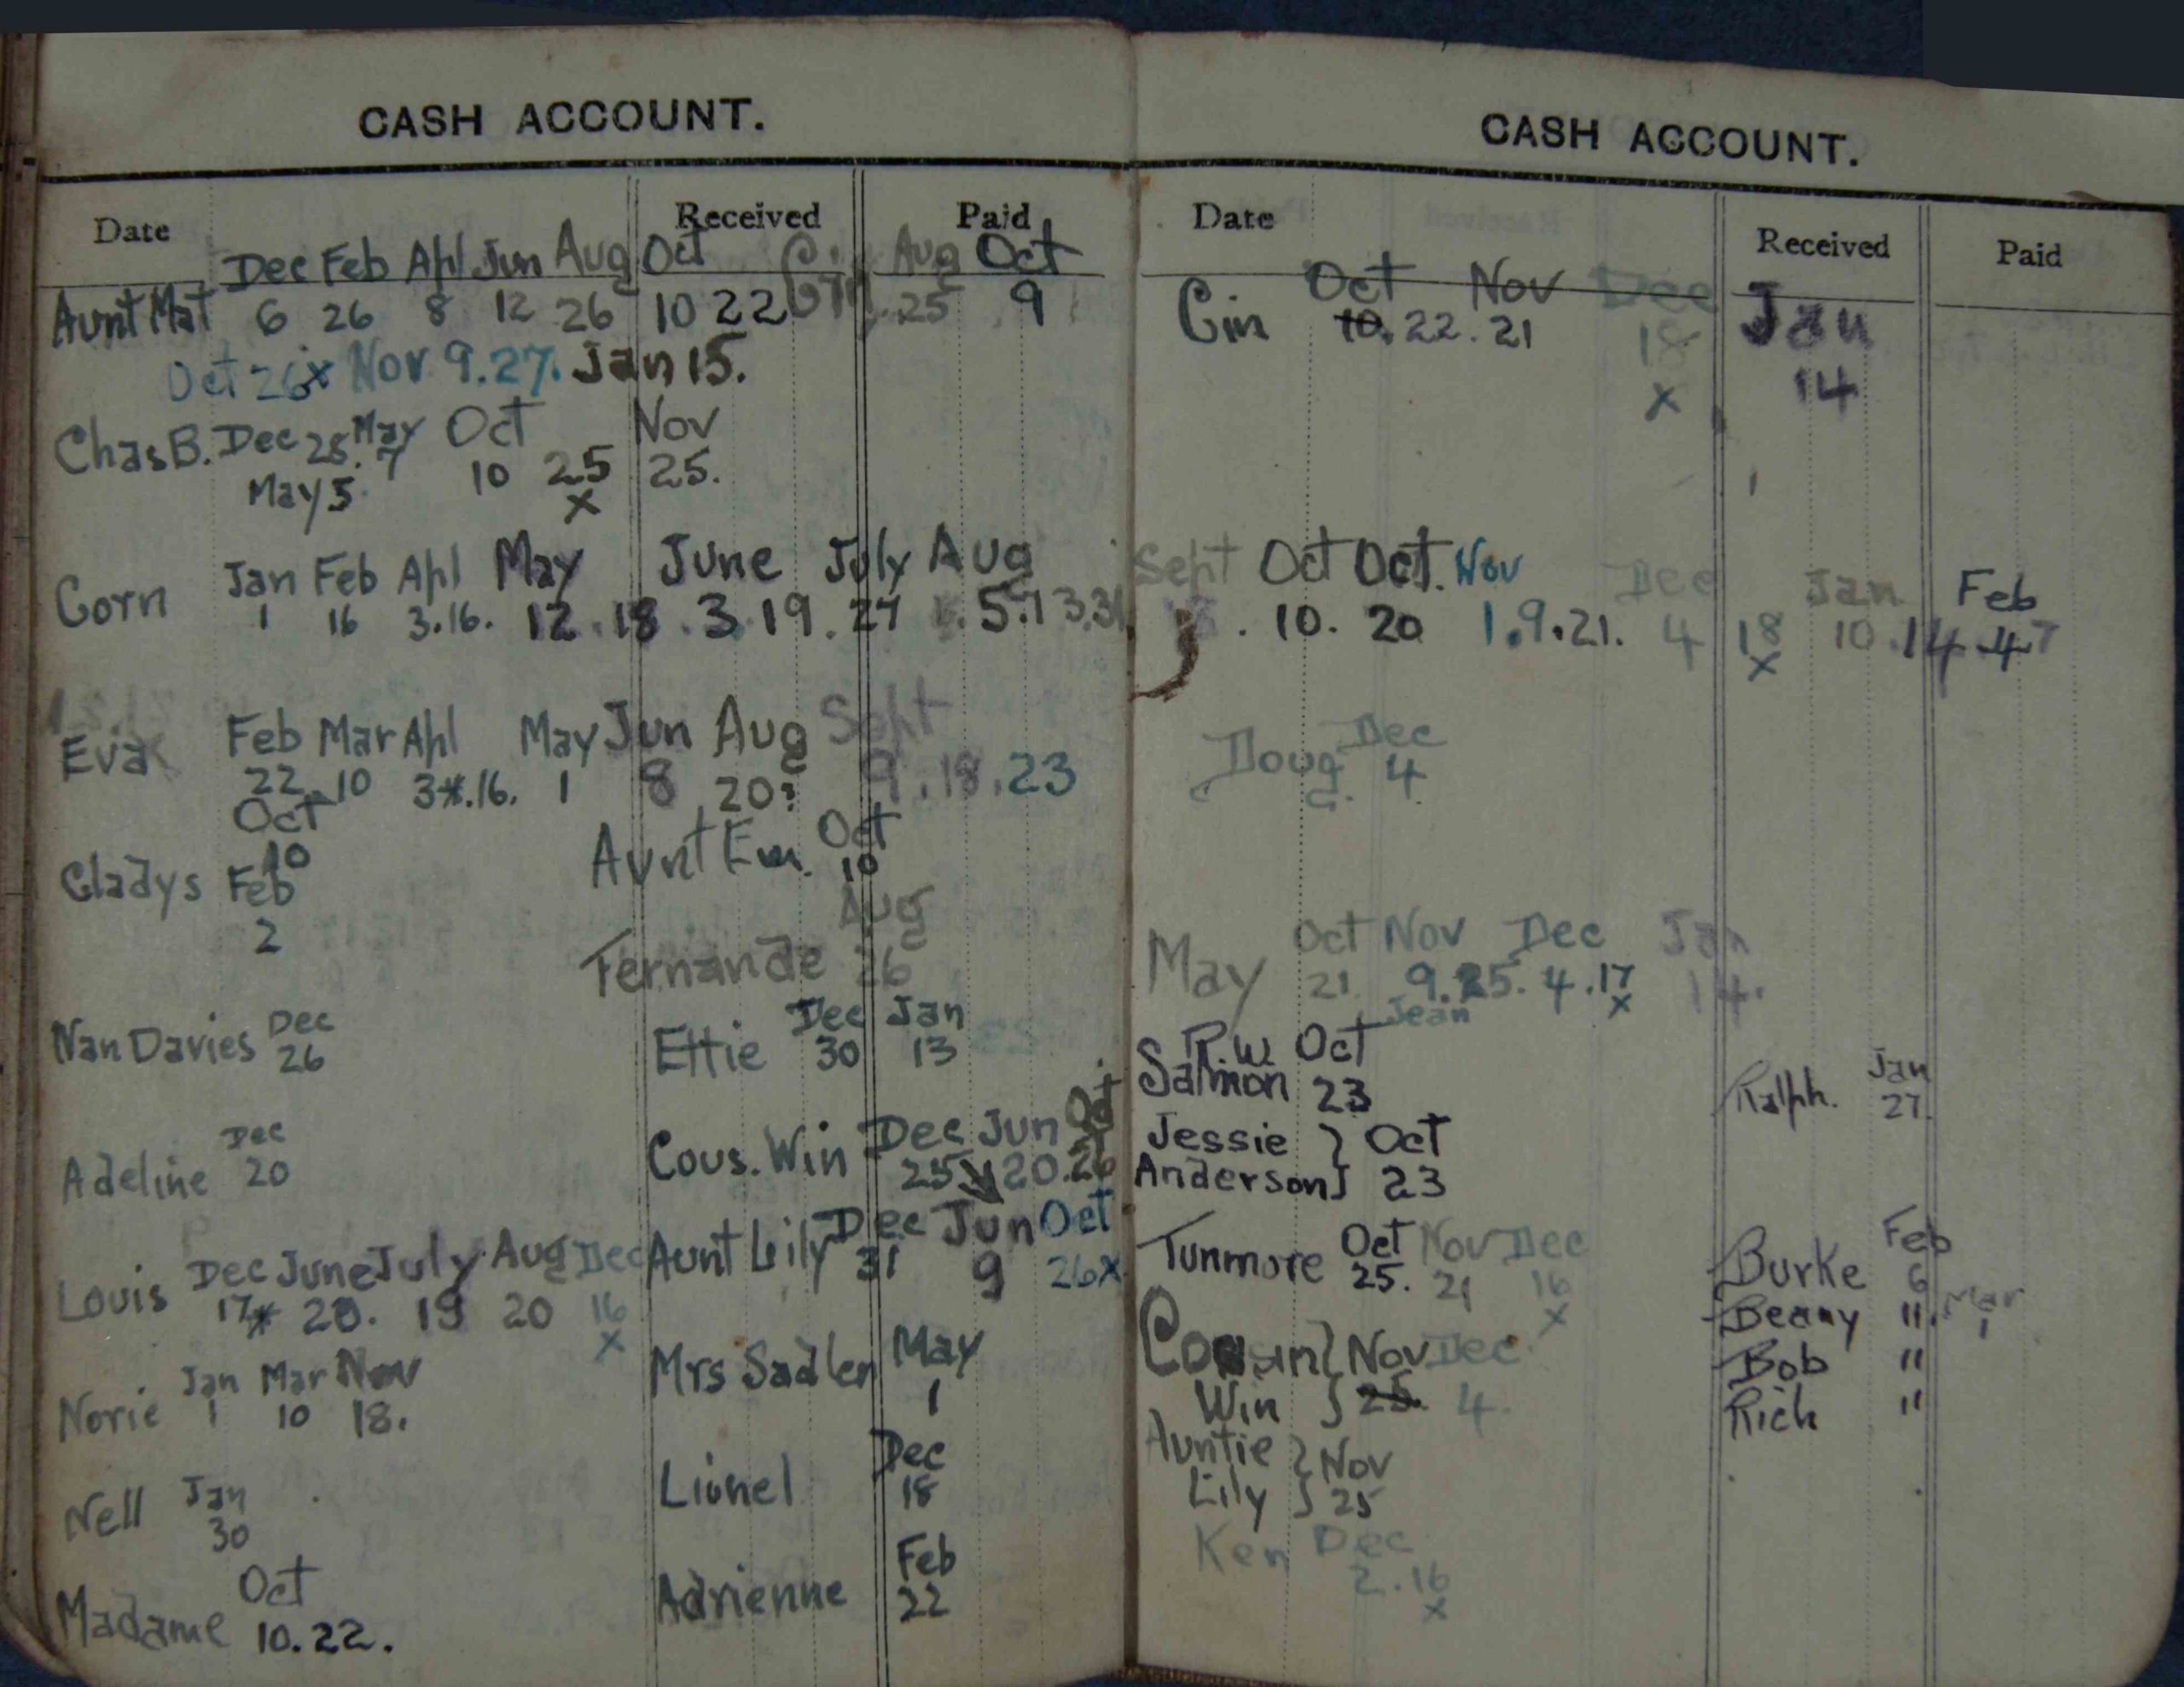 CASH ACCOUNT.
Date Received Paid
Dec Feb Apl Jun Aug Oct Cin Aug Oct
Aunt Mat 6 26 8 12 26 10 22 25 9
Oct 26x Nov 9.27. Jan 15.
Chas B. Dec 28. May 7 Oct Nov
May 5 10 25 25.
x
Jan Feb Apl May June July Aug
Corn 1 16 3.16. 12.18.3.19.27 5.13.31
Feb Mar Apl May Jun Aug Sept
Eva 22 10 3*.16. 1 8 20? 9.18.23
Oct
10
Aunt Em. Oct
10
Gladys Feb
2
Aug
Fernande 26
Nan Davies Dec
26
Ettie Dec Jan
30 13
Adeline Dec
20
Cous. Win Dec Jun Oct
25 20.26
Louis Dec June July Aug Dec
17* 20. 19 20 16
x
Aunt Lily Dec Jun Oct
31 9 26x
Norie Jan Mar Nov
1 10 18.
Mrs Sadler May
1
Nell Jan
30
Lionel Dec
18
Madame Oct
10.22.
Adrienne Feb
22
CASH ACCOUNT.
Date Received Paid
Oct Nov Dec Jan
Cin 10. 22. 21 18 14
x
Sept Oct Oct. Nov Dec Jan Feb
18. 10. 20 1.9.21. 4 18 10.14.4.7
x
Doug. Dec
4
Oct Nov Dec Jan
May 21 9.25. 4.17 14.
Jean x
R.W. Oct
Salmon 23
Ralph. Jan
27.
Jessie } Oct
Anderson } 23
Tunmore Oct Nov Dec
25. 21 16
x
Burke Feb
6
Beany " Mar
1
Cousin } Nov Dec
Win } 25. 4.
Bob "
Rich "
Auntie } Nov
Lily } 25
Ken Dec
2.16
x